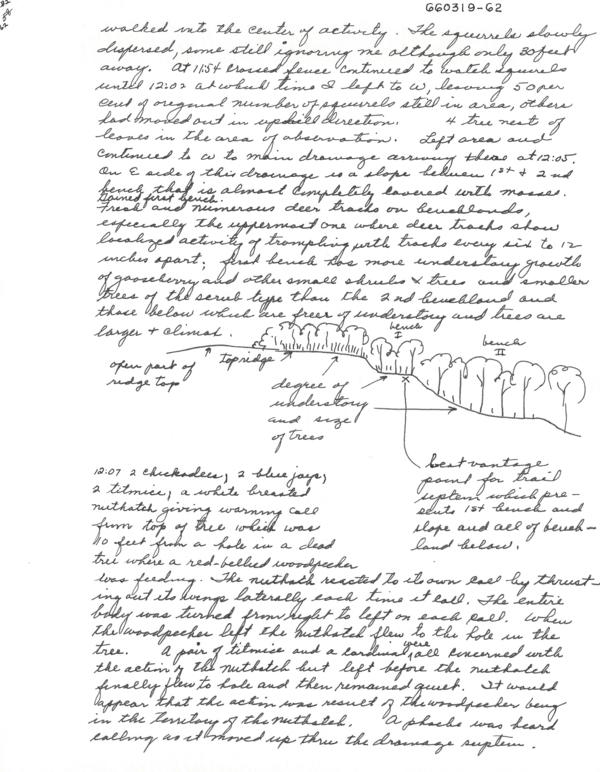 660319-62
walked into the center of activity. The squirrels slowly
dispersed, some still ignoring me although only 30 feet
away. At 11:54 crossed fence continued to watch squirrels
until 12:02 at which time I left to W, leaving 50 per
cent of original number of squirrels still in area, others
had moved out in uphill direction. 4 tree nest of
leaves in the area of observation. Left area and
continued to W to main drainage arriving there at 12:05.
On E side of this drainage is a slope between 1st + 2nd
bench that is almost completely covered with mosses.
Gained first bench.
Fresh and numerous deer tracks on benchlands,
especially the uppermost one where deer tracks show
localized activity of trampling with tracks every six to 12
inches apart; first bench has more understory growth
of gooseberry and other small shrubs & trees and smaller
trees of the scrub type than the 2nd benchland and
those below which are freer of understory and trees are
larger + climax.
bench
I
bench
II
open part of
ridge top
top ridge
degree of
understory
and size
of trees
best vantage
point for trail
system which pre-
sents 1st bench and
slope and all of bench-
land below.
12:07 2 chickadees, 2 blue jays,
2 titmice, a white breasted
nuthatch giving warning call
from top of tree which was
10 feet from a hole in a dead
tree where a red-bellied woodpecker
was feeding. The nuthatch reacted to its own call by thrust-
ing out its wings laterally each time it call. The entire
body was turned from right to left on each call. When
the woodpecker left the nuthatch flew to the hole in the
tree. A pair of titmice and a cardinal were all concerned with
the action of the nuthatch but left before the nuthatch
finally flew to hole and then remained quiet. It would
appear that the action was result of the woodpecker being
in the territory of the nuthatch. A phoebe was heard
calling as it moved up thru the drainage system.